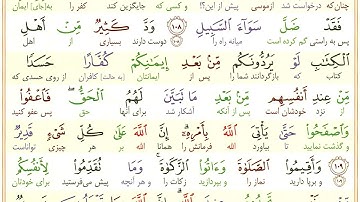 چنان که درخواست شد ازموسی پیش از این؟! و کسی که جایگزین کند کفر را به(جای) ایمان
فَقَدْ ضَلَّ سَوَآءَ ٱلسَّبِيلِ ١٠٨ وَدَّ كَثِيرٌ مِّنْ أَهْلِ
پس به راستی گم کرده است میانه راه را ۱۰۸ دوست دارند بسیاری از اهل
ٱلْكِتَٰبِ لَوْ يَرُدُّونَكُم مِّنۢ بَعْدِ إِيمَٰنِكُمْ كُفَّارًا حَسَدًا
کتاب که بازگردانند شما را پس از ایمانتان (به حالت) کافران از روی حسدی که
مِّنْ عِندِ أَنفُسِهِم مِّنۢ بَعْدِ مَا تَبَيَّنَ لَهُمُ ٱلْحَقُّ فَٱعْفُوا۟
از نزد خودشان است پس از آنکه آشکار شد برای آنها حق پس عفو کنید
وَٱصْفَحُوا۟ حَتَّىٰ يَأْتِىَ ٱللَّهُ بِأَمْرِهِۦٓ إِنَّ ٱللَّهَ عَلَىٰ كُلِّ شَىْءٍ قَدِيرٌ
تا بیاورد الله فرمانش را همانا الله بر هر چیزی تواناست
١٠٩ وَأَقِيمُوا۟ ٱلصَّلَوٰةَ وَءَاتُوا۟ ٱلزَّكَوٰةَ وَمَا تُقَدِّمُوا۟ لِأَنفُسِكُم
و برپا دارید نماز را و بپردازید زکات را و هر آنچه پیش می‌فرستید برای خودتان